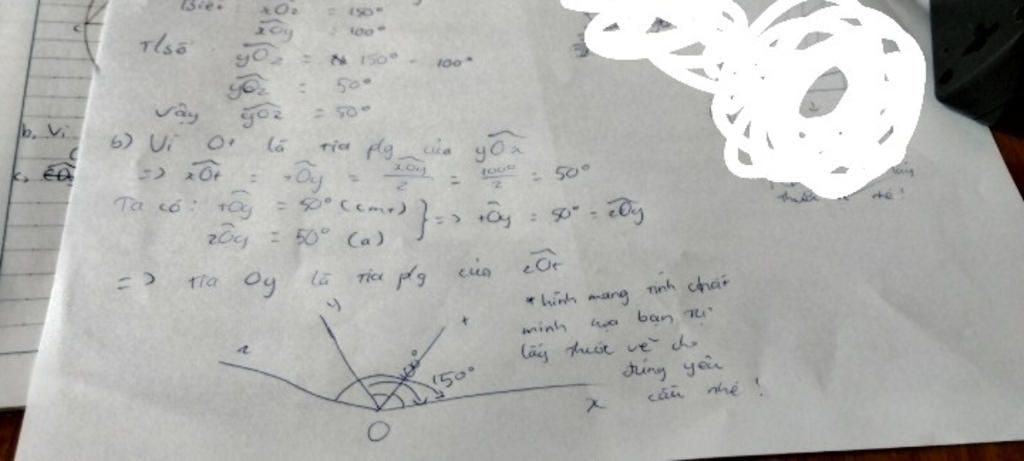 Biết: xOz = 150°
xOy = 100°
T/số yOz = 150° - 100°
yOz = 50°
Vậy yOz = 50°
b, Vì
c,
b) Vì Ot là tia p/g của yOx
=> xOt = tOy = xOy/2 = 100°/2 = 50°
Ta có: tOy = 50° (cmt) } => tOy = 50° = zOy
zOy = 50° (a)
=> tia Oy là tia p/g của zOt
* hình mang tính chất
minh họa bạn tự
lấy thước vẽ cho
đúng yêu
cầu nhé!
z y t
100° 150°
x
O
lấy
thước nhé!